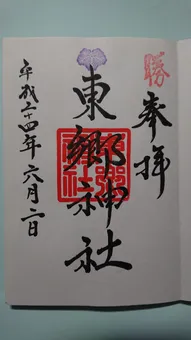 勝
奉拝
東郷神社
平成二十四年六月二日